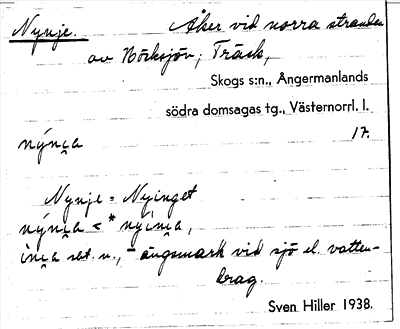 Nynje. Åker vid norra stranden
av Nörksjön, Träsk,
Skogs s:n., Ångermanlands
södra domsagas tg., Västernorrl. l.
nýni̯a 17.
Nynje = Nyinget
nýni̯a < *nyíni̯a,
íni̯a sbt. n., - ängsmark vid sjö el. vatten-
drag.
Sven Hiller 1938.